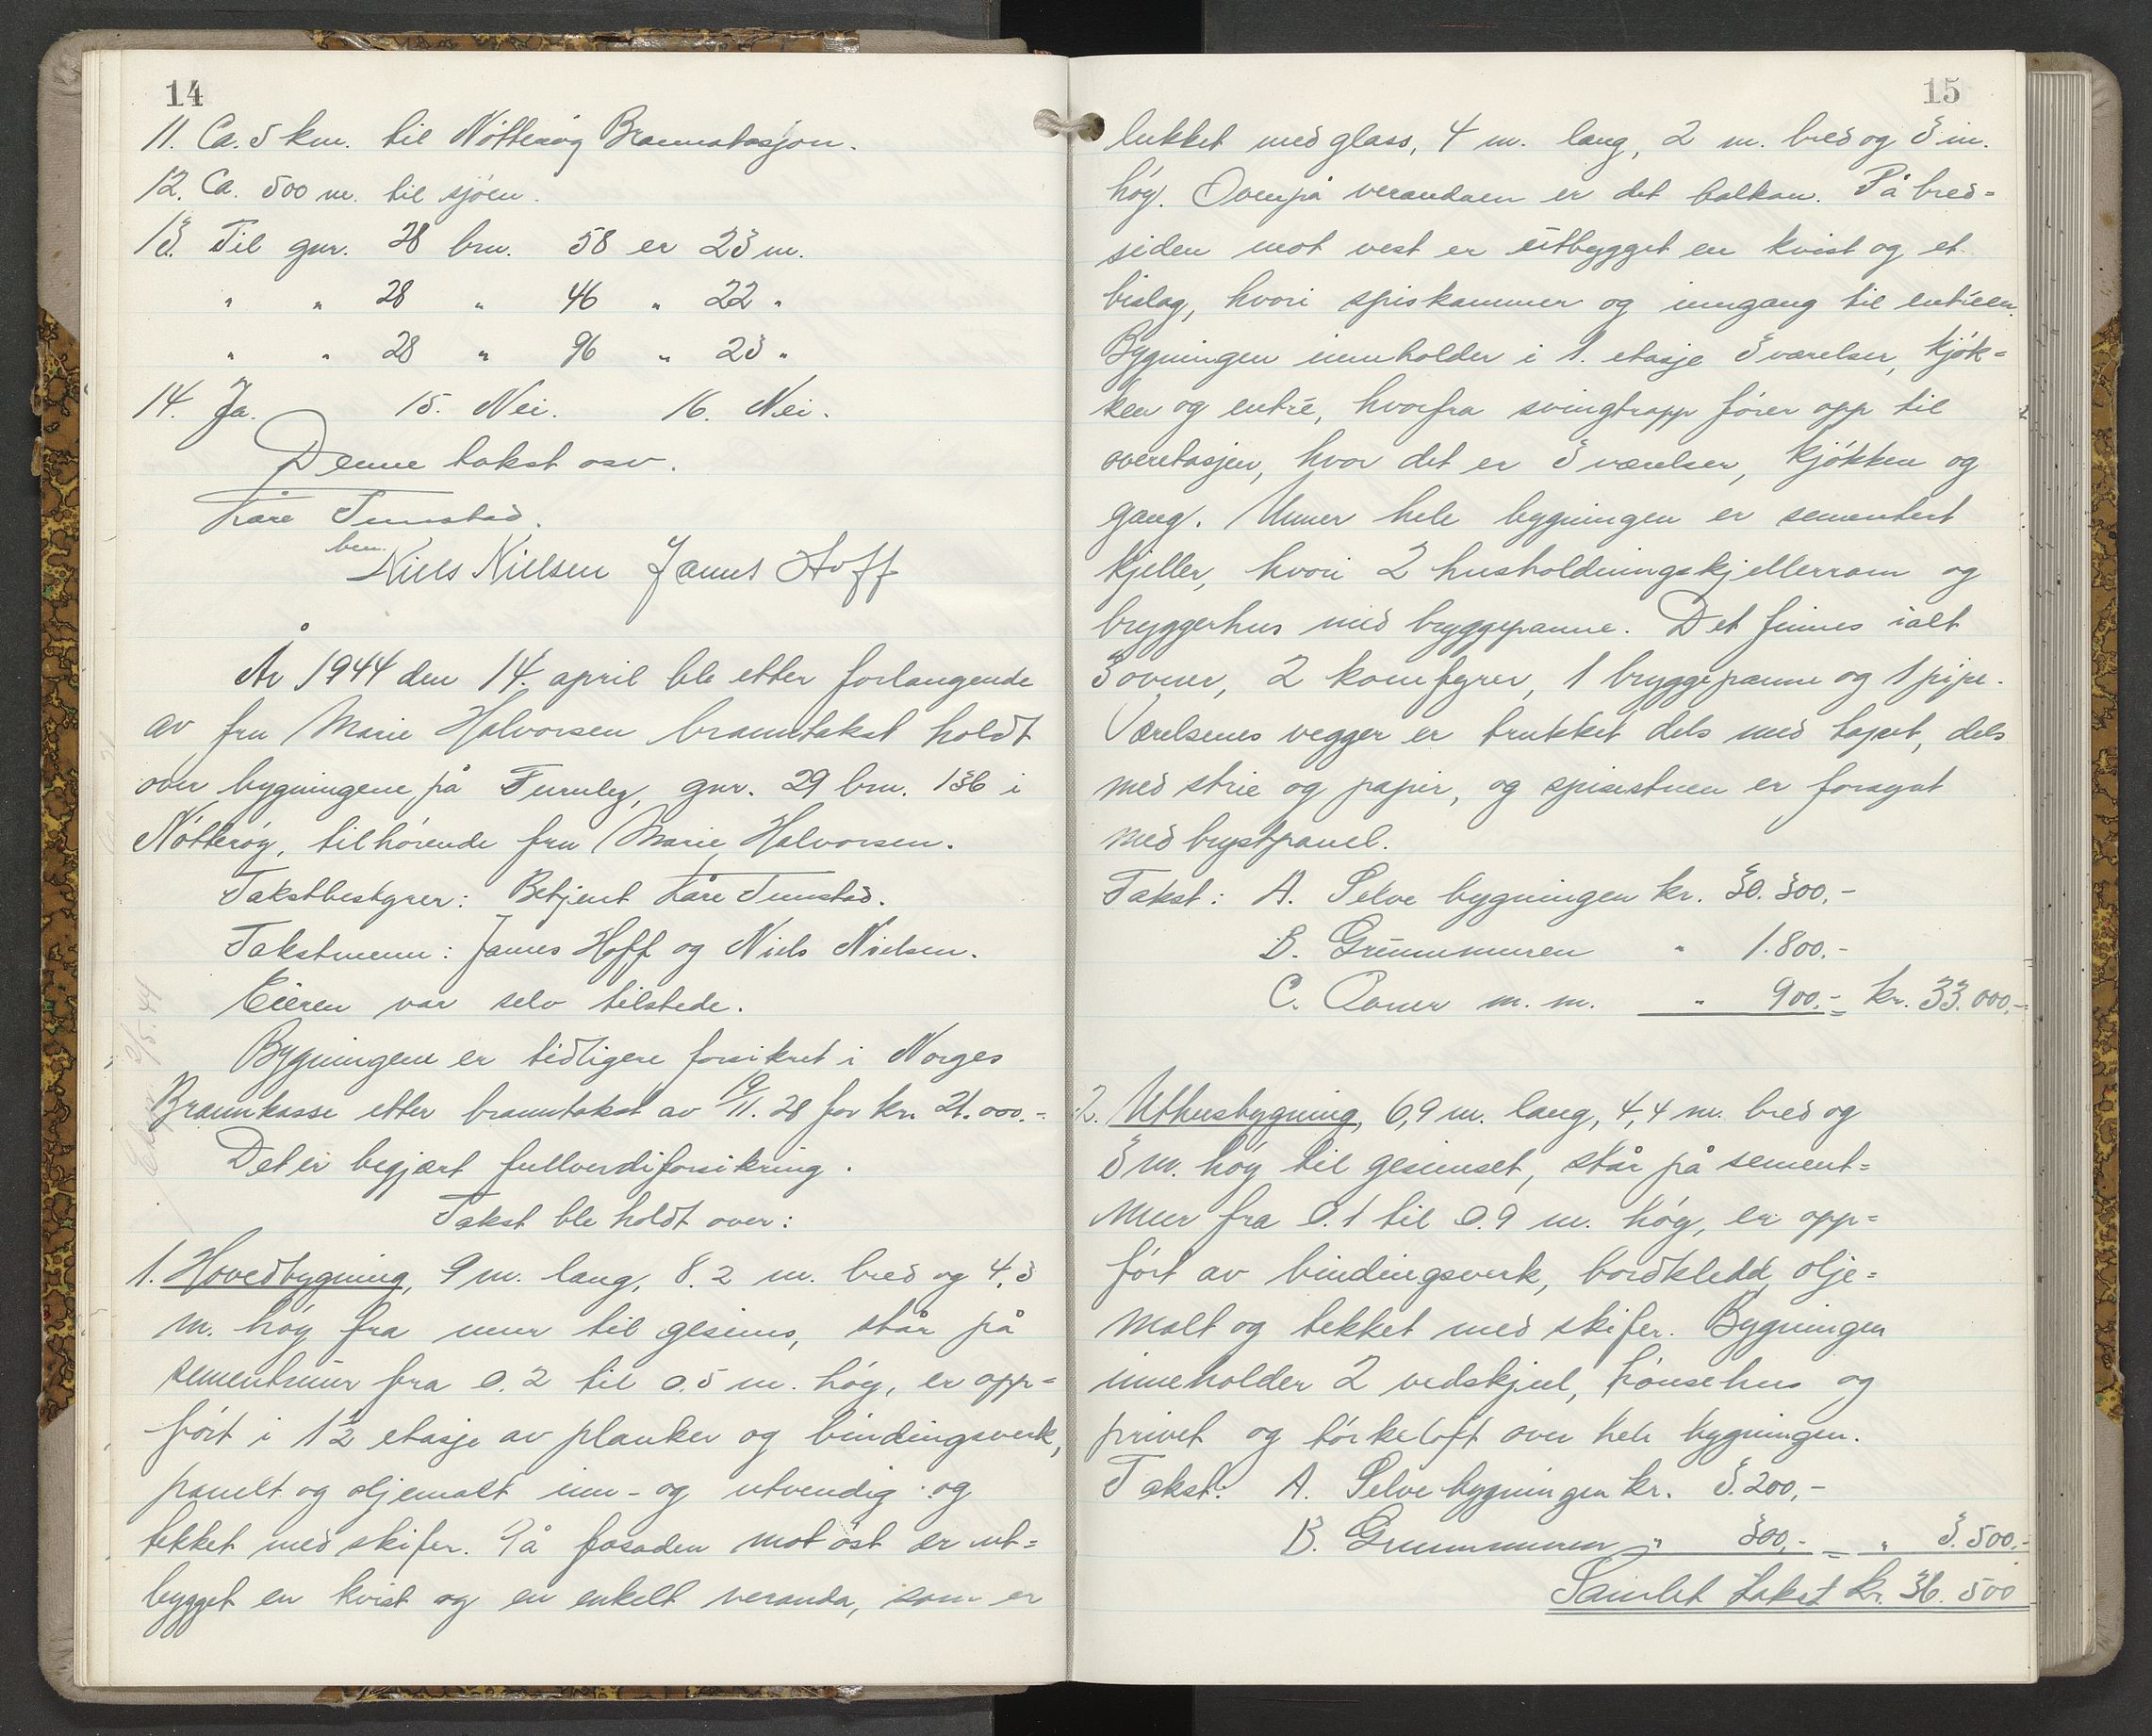 14
11. Ca. 5 km. til Nötteröy Brannstasjon.
12. Ca. 500 m. til sjöen.
13. Til gnr. 28 bnr. 58 er 23 m.
" " 28 " 46 " 22 "
" " 28 " 96 " 23 "
14. Ja. 15. Nei. 16. Nei.
Denne takst osv.
Kåre Tunstad.
bm.
Niels Nielsen James Hoff
År 1944 den 14. april ble etter forlangende
av fru Marie Halvorsen branntakst holdt
over bygningene på Furuly, gnr. 29 bnr. 136 i
Nötteröy, tilhörende fru Marie Halvorsen.
Takstbestyrer: Betjent Kåre Tunstad.
Takstmenn: James Hoff og Niels Nielsen.
Eieren var selv tilstede.
Bygningene er tidligere forsikret i Norges
Brannkasse etter branntakst av 19/11. 28 for kr. 21.000.-
Det er begjært fullverdiforsikring.
Takst ble holdt over:
1. Hovedbygning, 9 m. lang, 8.2 m. bred og 4.3
m. höy fra mur til gesims, står på
sementmur fra 0.2 til 0.5 m. höy, er opp=
fört i 1½ etasje av planker og bindingsverk,
panelt og oljemalt inn- og utvendig og
tekket med skifer. På fasaden mot öst er ut=
bygget en kvist og en enkelt veranda, som er
2/5.44
15
lukket med glass, 4 m. lang, 2 m. bred og 3 m.
höy. Ovenpå verandaen er det balkon. På bred=
siden mot vest er utbygget en kvist og et
bislag, hvori spiskammer og inngang til entreen.
Bygningen innholder i 1. etasje 3 værelser, kjök=
ken og entré, hvorfra svingtrapp förer opp til
overetasjen, hvor det er 3 værelser, kjökken og
gang. Unner hele bygningen er sementert
kjeller, hvori 2 husholdningskjellerrom og
bryggerhus med bryggepanne. Det finnes ialt
3 ovner, 2 komfyrer, 1 bryggepanne og 1 pipe.
Værelsenes vegger er trukket dels med tapet, dels
med strie og papir, og spisestuen er forsynt
med brystpanel.
Takst: A. Selve bygningen kr. 30.300,-
B. Grunnmuren " 1.800.-
C. Ovner m. m. " 900.- = kr. 33.000,-
2. Uthusbygning, 6,9 m. lang, 4,4 m. bred og
3 m. höy til gesimset, står på sement=
mur fra 0.1 til 0.9 m. höy, er opp=
fört av bindingsverk, bordkledd, olje=
malt og tekket med skifer. Bygningen
inneholder 2 vedskjul, hönsehus og
privet og törkeloft over hele bygningen.
Takst: A. Selve bygningen kr. 3.200,-
B. Grunnmuren " 300,- = " 3.500.-
Samlet takst kr. 36.500